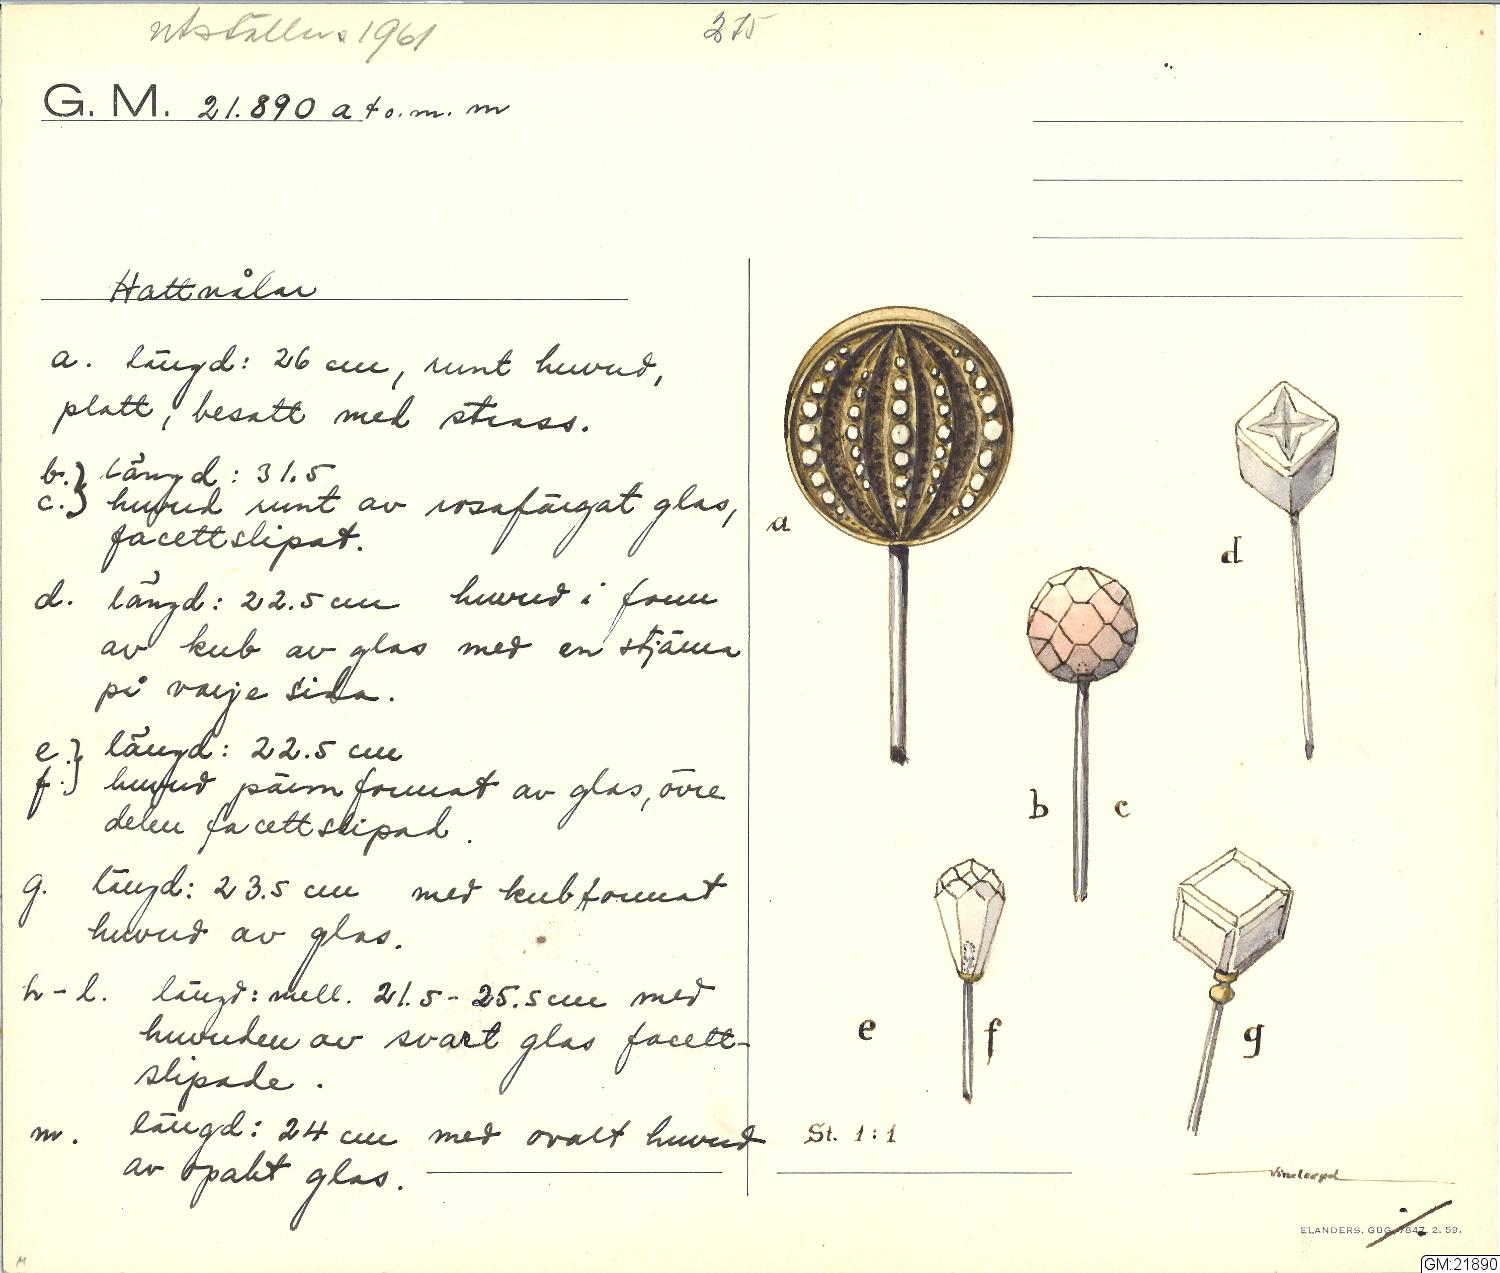 utställas 1961
275
G. M. 21.890 a t o. m. m
Hattnålar
a. längd: 26 cm, runt huvud,
platt, besatt med strass.
b.} längd: 31.5
c.} huvud runt av rosafärgat glas,
facettslipat.
d. längd: 22.5 cm huvud i form
av kub av glas med en stjärna
på varje sida.
e.} längd: 22.5 cm
f.} huvud päronformat av glas, övre
delen facettslipad.
g. längd: 23.5 cm med kubformat
huvud av glas.
h-l. längd: mell. 21.5-25.5 cm med
huvuden av svart glas facett-
slipade.
m. längd: 24 cm med ovalt huvud
av opakt glas.
a
d
b c
e f
g
St. 1:1
ELANDERS. GBG. 7847. 2. 59.
M
GM:21890